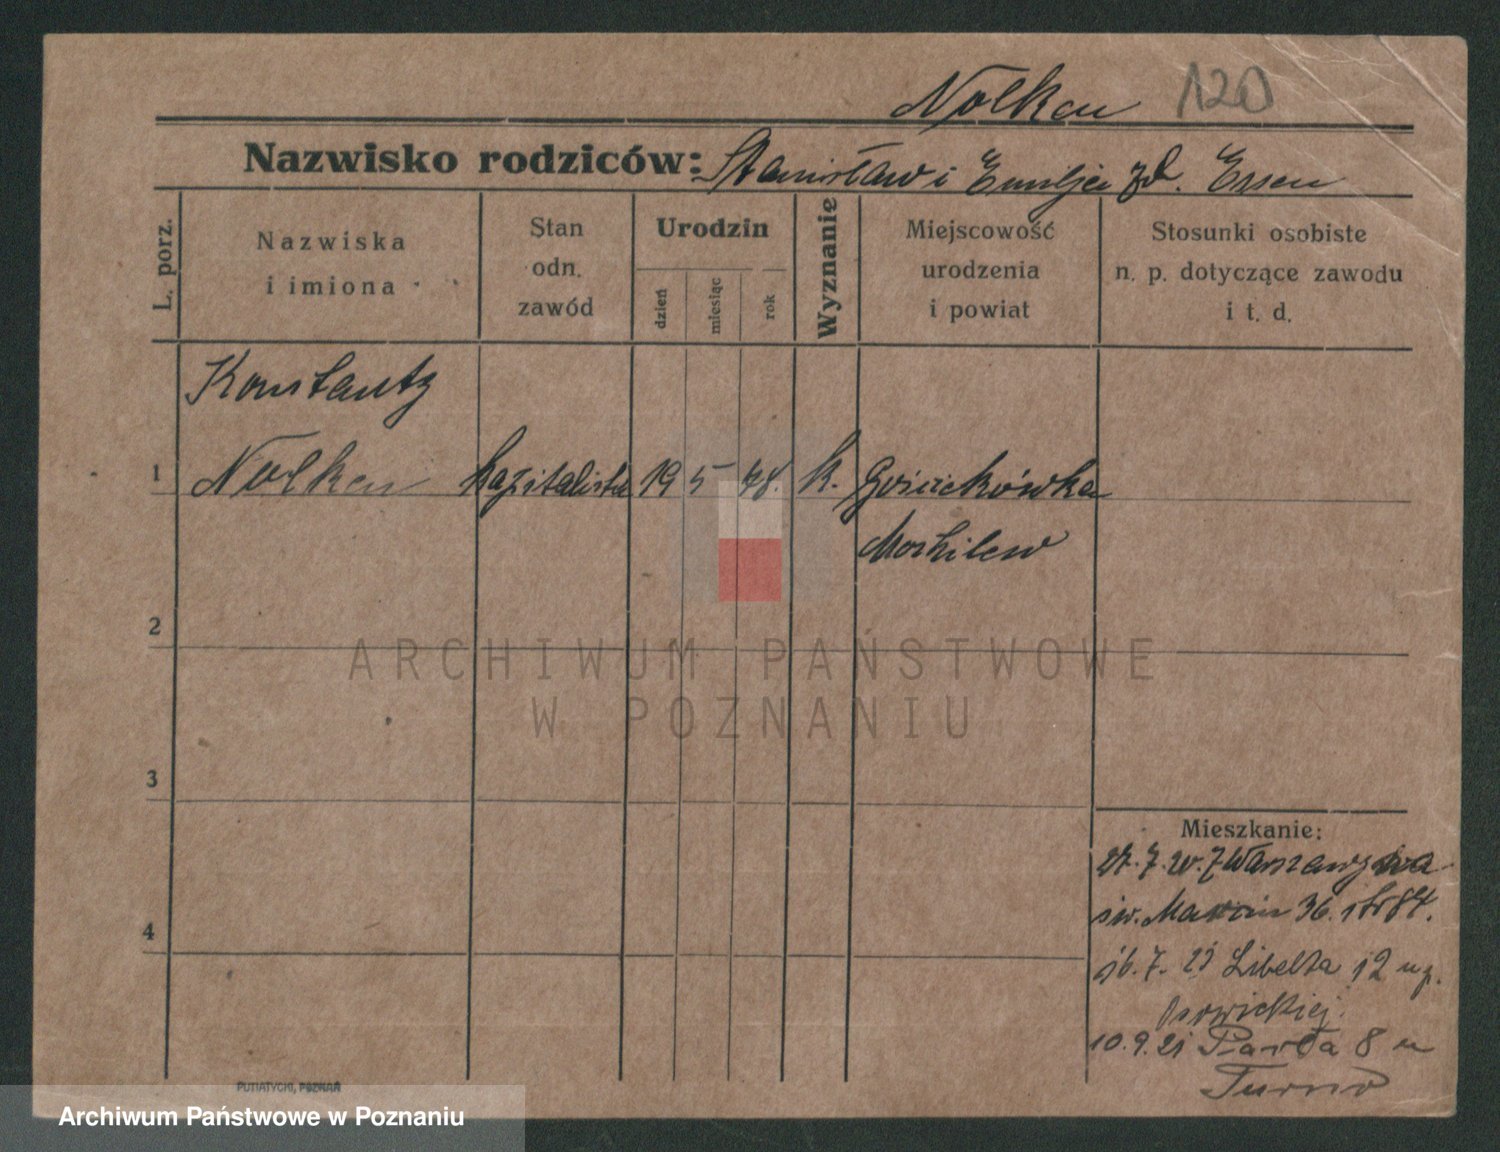 Nolken 120
Nazwisko rodziców: Stanisław i Emilja zd. Essen
L. porz.
Nazwiska
i imiona
Stan
odn.
zawód
Urodzin
dzień
miesiąc
rok
Wyznanie
Miejscowość
urodzenia
i powiat
Stosunki osobiste
n. p. dotyczące zawodu
i t. d.
Konstanty
1 Nolken kapitalista 19 5 48. k.
Mohilew
2
ARCHIWUM PAŃSTWOWE
W POZNANIU
3
4
Mieszkanie:
7. Warszawy
św. Marcin 36.
16. 7. 21 Libelta 12 u p.
10. 9. 21 Pawła 8 u
Turno
PUTIATYCKI, POZNAŃ
Archiwum Państwowe w Poznaniu